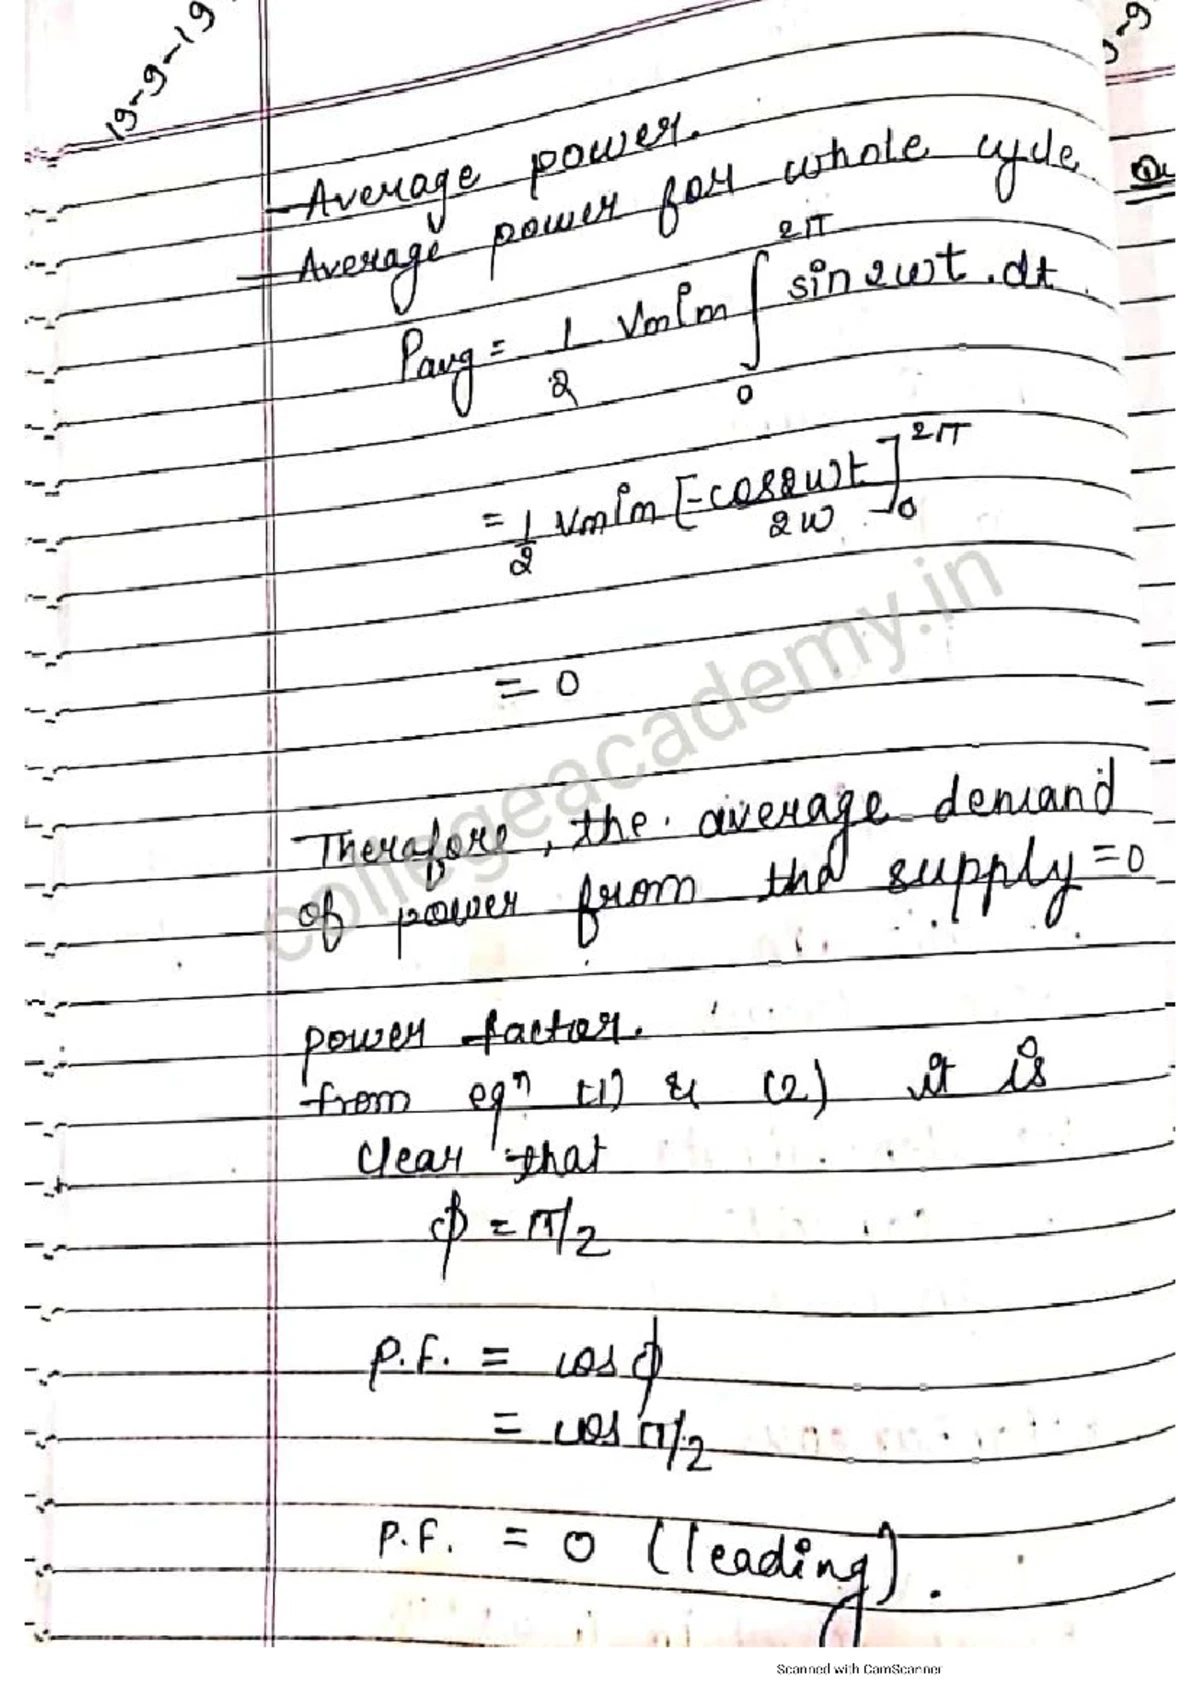 19-9-19
Average power.
Average power for whole cycle.
Pavg = 1/2 VmIm ∫₀^2π sin2ωt.dt
= 1/2 VmIm [-cos2ωt/2ω]₀^2π
= 0
Therefore, the average demand
of power from the supply = 0
power factor.
from eqn (1) & (2) it is
clear that
ϕ = π/2
P.F. = cos ϕ
= cos π/2
P.F. = 0 (leading).
collegeacademy.in
Scanned with CamScanner